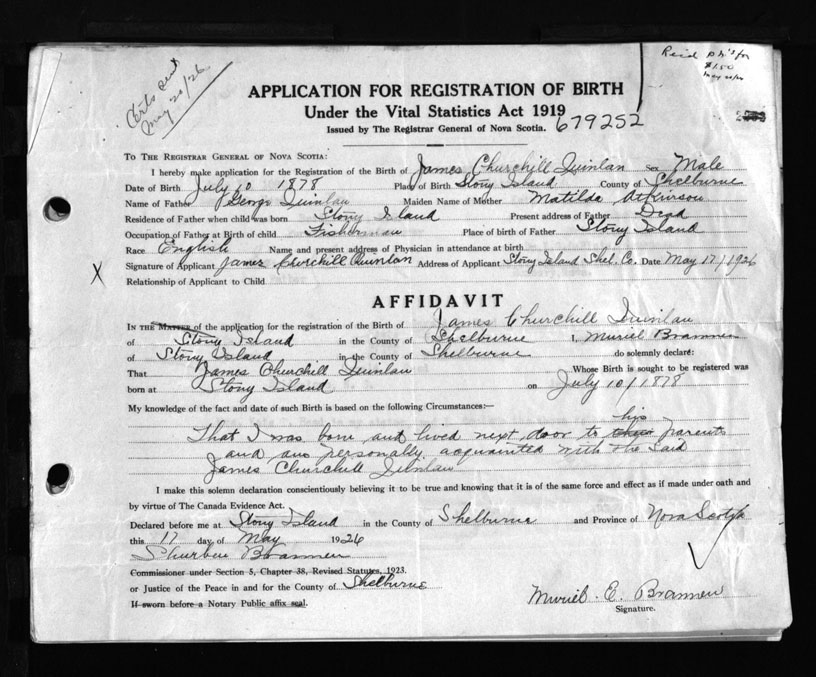 Certs sent
May 20/26
Reid ph's for
$1.50
May 20/26
APPLICATION FOR REGISTRATION OF BIRTH
Under the Vital Statistics Act 1919
Issued by The Registrar General of Nova Scotia. 679252
TO THE REGISTRAR GENERAL OF NOVA SCOTIA:
I hereby make application for the Registration of the Birth of James Churchill Quinlan Sex Male
Date of Birth July 10 1878 Place of Birth Stony Island County of Shelburne
Name of Father George Quinlan Maiden Name of Mother Matilda Atkinson
Residence of Father when child was born Stony Island Present address of Father Dead
Occupation of Father at Birth of child Fisherman Place of birth of Father Stony Island
Race English Name and present address of Physician in attendance at birth
X Signature of Applicant James Churchill Quinlan Address of Applicant Stony Island Shel. Co. Date May 17/1926
Relationship of Applicant to Child
AFFIDAVIT
IN THE MATTER of the application for the registration of the Birth of James Churchill Quinlan
of Stony Island in the County of Shelburne I, Muriel Brannen
of Stony Island in the County of Shelburne do solemnly declare:
That James Churchill Quinlan Whose Birth is sought to be registered was
born at Stony Island on July 10/1878
My knowledge of the fact and date of such Birth is based on the following Circumstances:—
That I was born and lived next door to his parents
and am personally acquainted with the said
James Churchill Quinlan
I make this solemn declaration conscientiously believing it to be true and knowing that it is of the same force and effect as if made under oath and
by virtue of The Canada Evidence Act.
Declared before me at Stony Island in the County of Shelburne and Province of Nova Scotia
this 17 day of May 1926
Brannen
Commissioner under Section 5, Chapter 38, Revised Statutes, 1923.
or Justice of the Peace in and for the County of Shelburne
If sworn before a Notary Public affix seal.
Muriel E. Brannen
Signature.